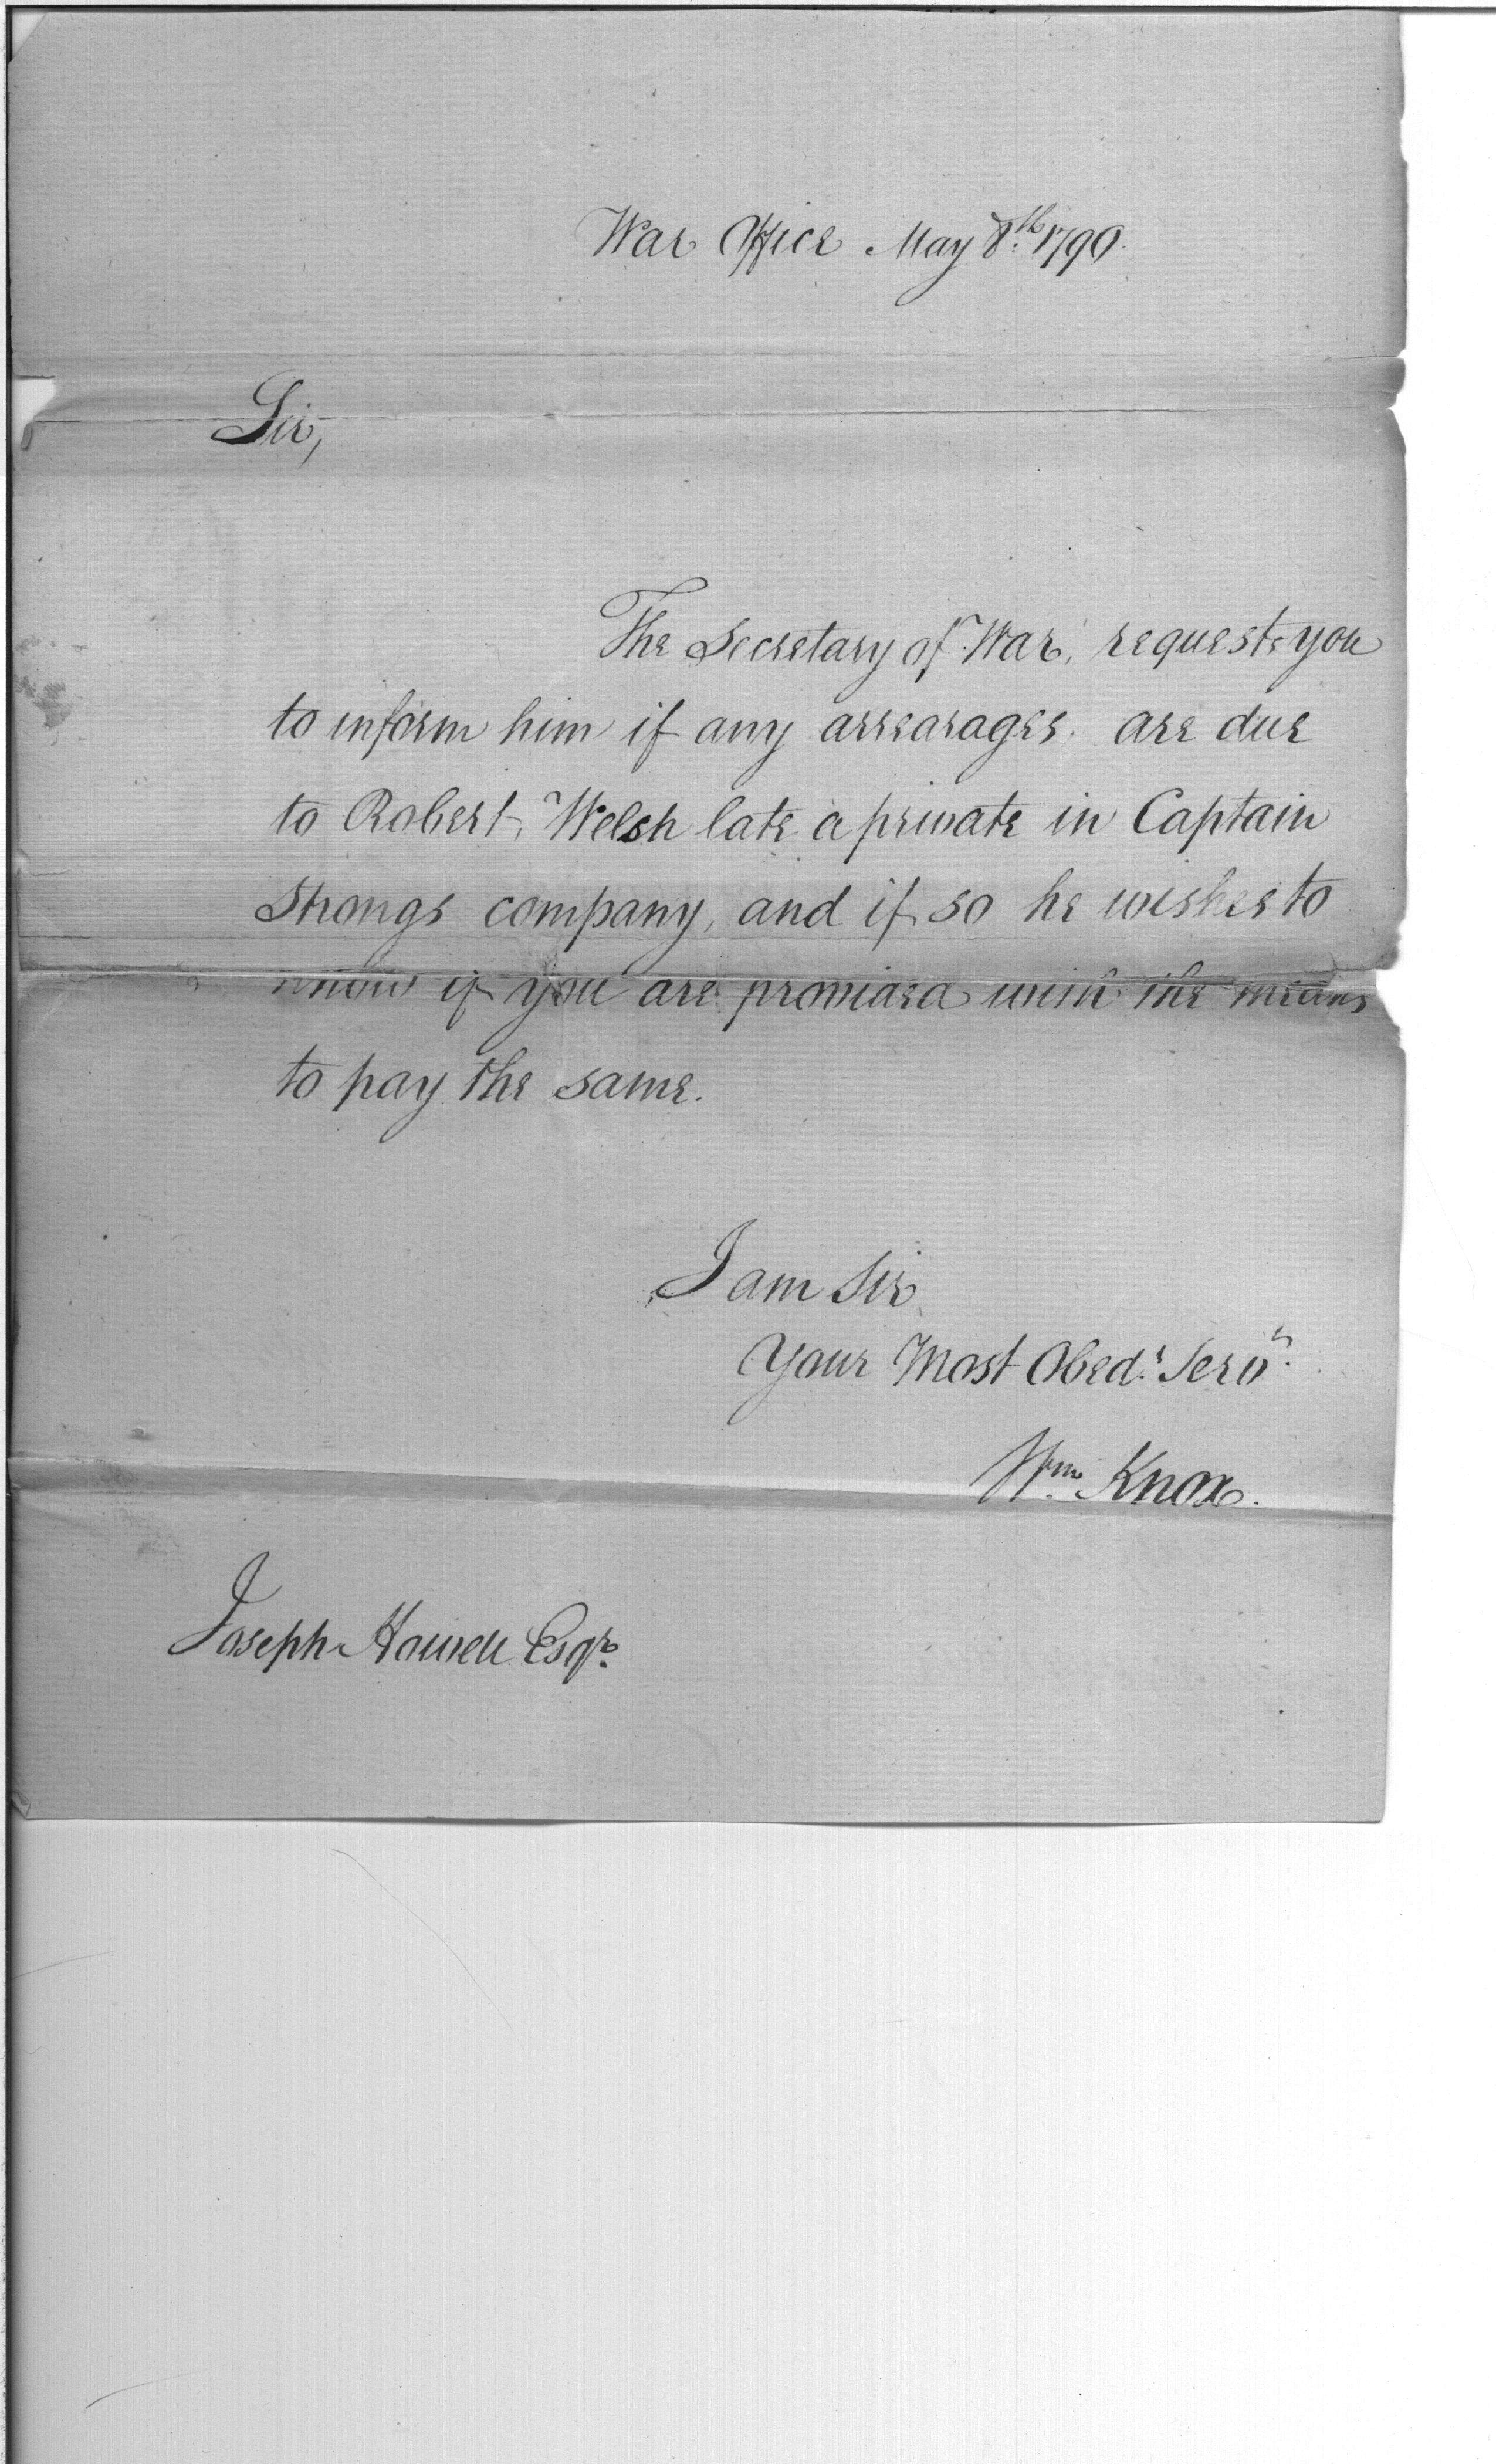 War Office May 8th. 1790.
Sir,
The Secretary of War, requests you
to inform him if any arrearages are due
to Robert Welsh late a private in Captain
Strongs company, and if so he wishes to
know if you are provided with the means
to pay the same.
I am Sir
Your Most Obedt. Servt.
Wm. Knox.
Joseph Howell Esqr.